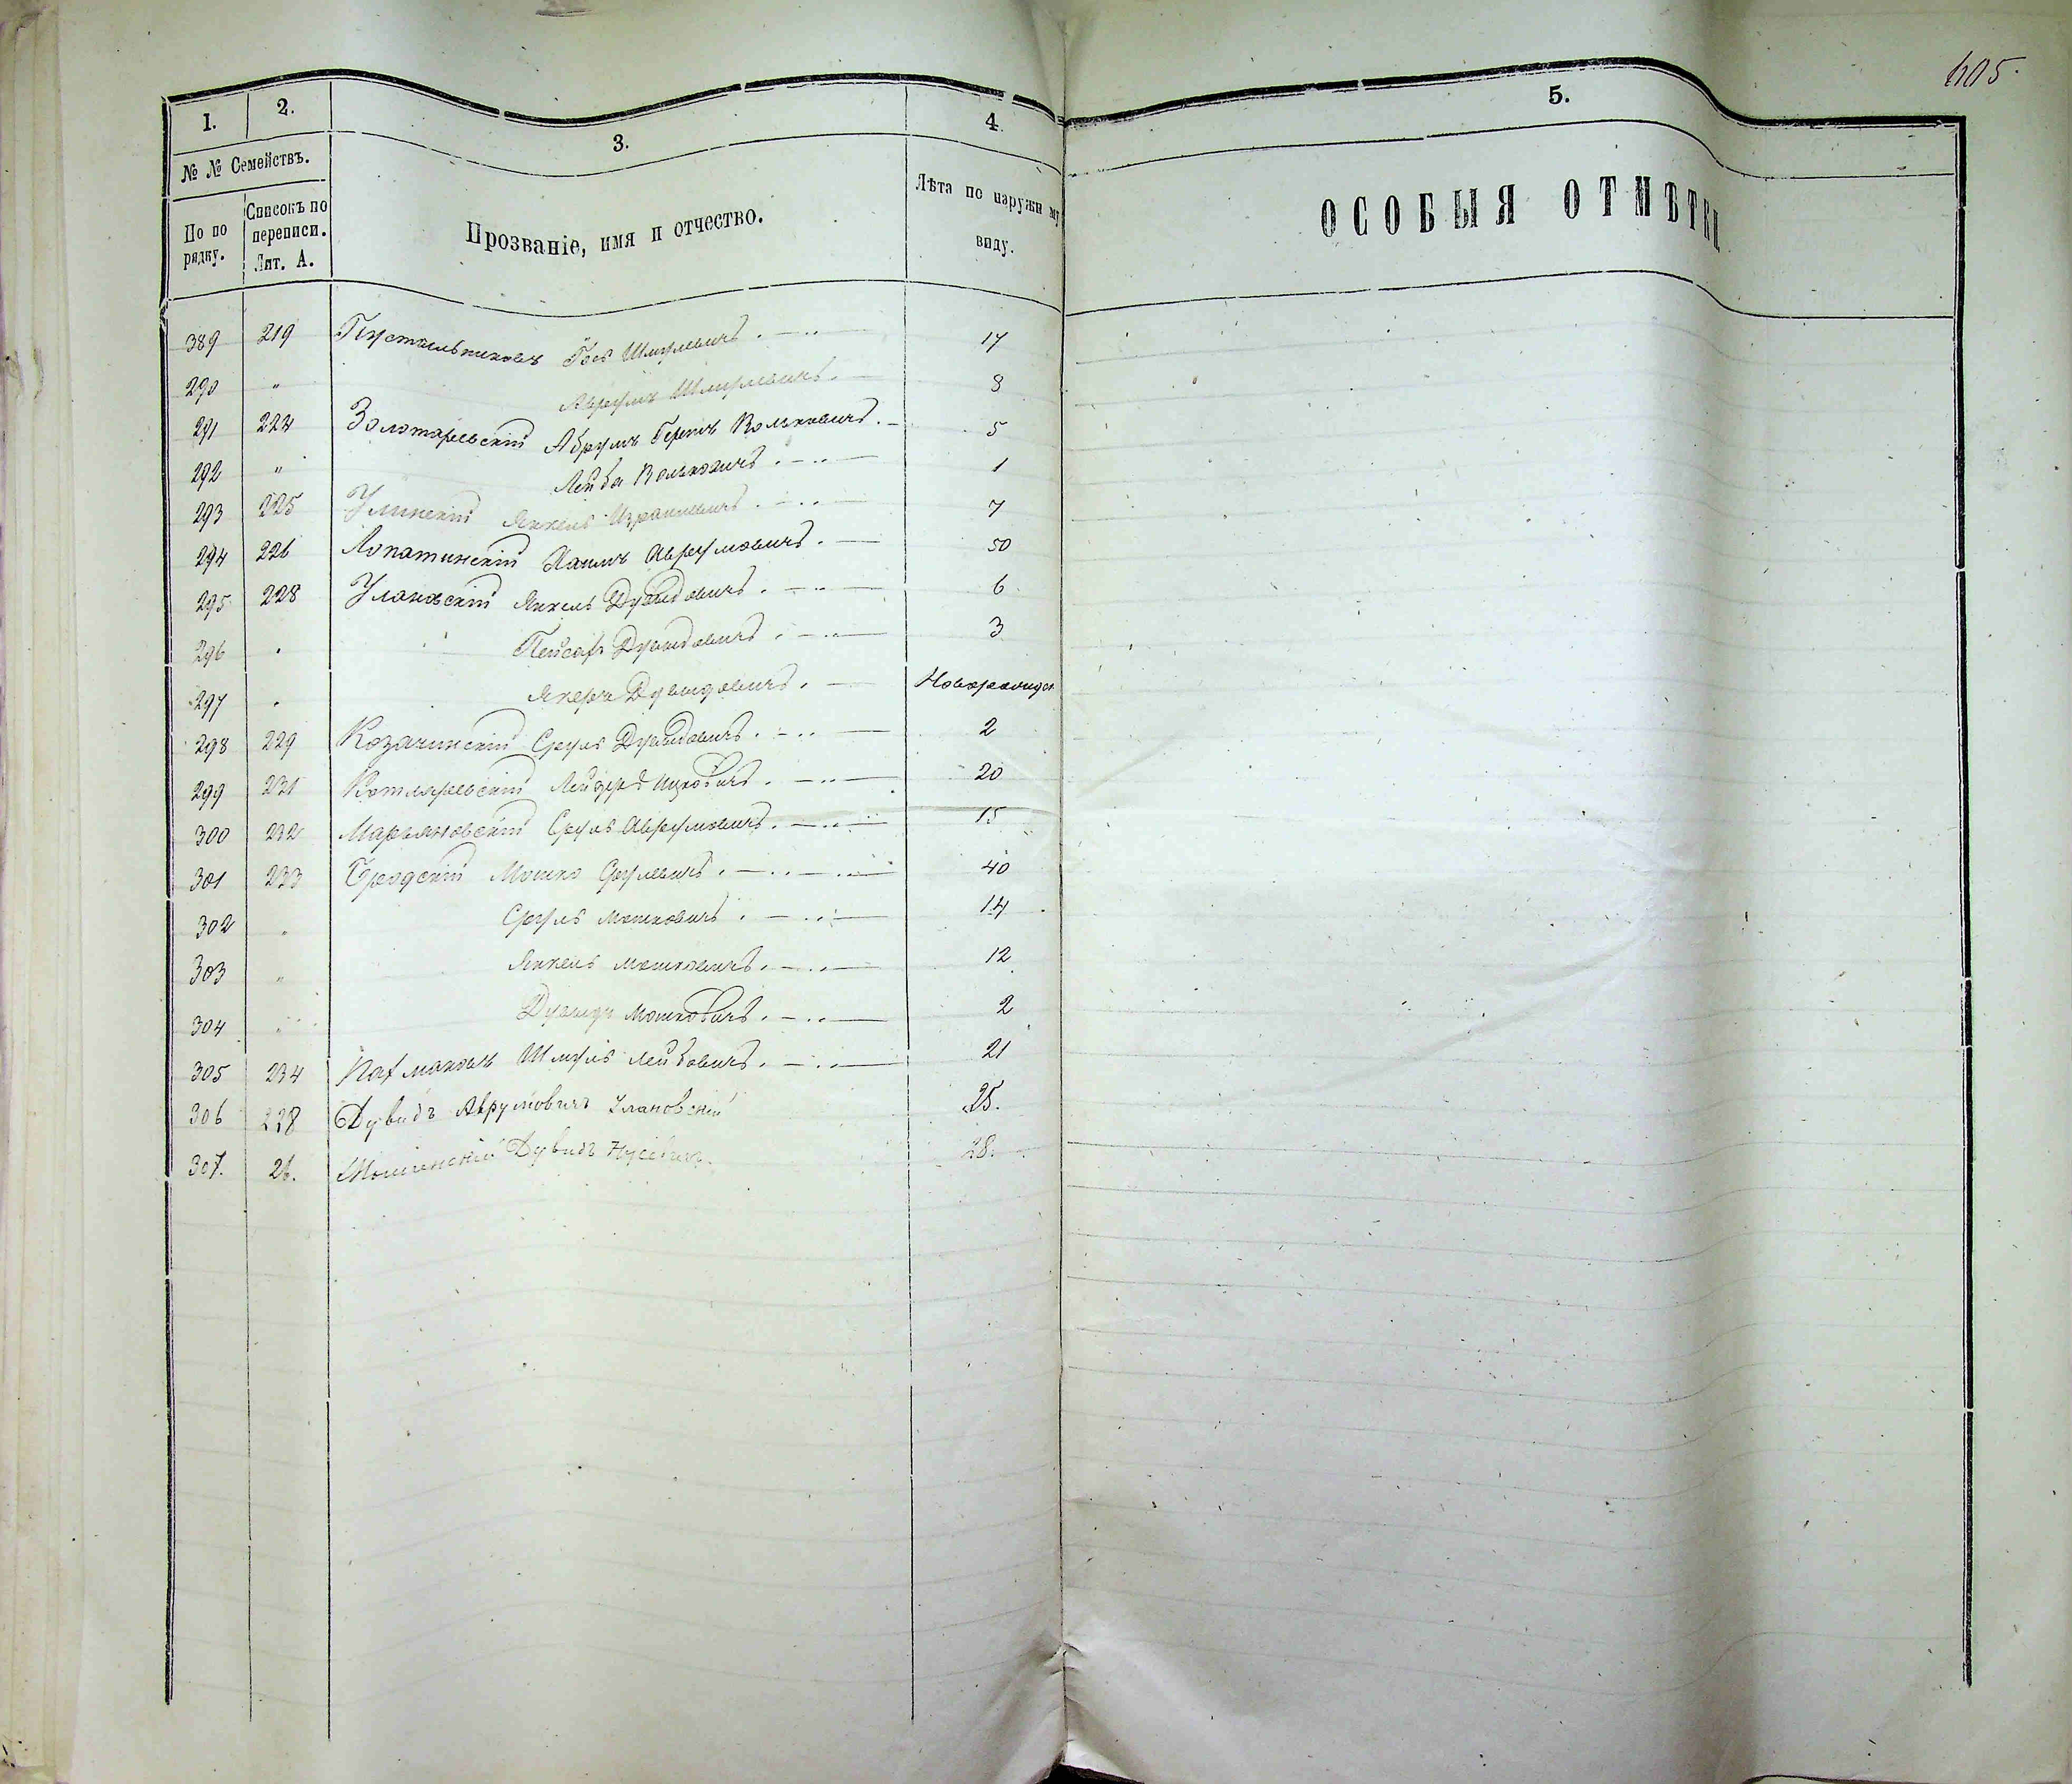 605.
1. 2. 3. 4 5.
№ № Семействъ.
По по рядку.
Списокъ по переписи. Лит. А.
Прозваніе, имя и отчество.
Лѣта по наружн му виду.
ОСОБЫЯ ОТМѢТКИ
389 219 Пустыльниковъ Іось Шмулевичъ 17
290 " Аврумъ Шмулевичъ 8
291 224 Золотаревскій Абрумъ Гершъ Вольковичъ 5
292 " Лейба Вольковичъ 1
293 225 Улинскій Янкель Израилевичъ 7
294 226 Лопатинскій Хаимъ Аврумовичъ 50
295 228 Улановскій Янкель Дувидовичъ 6
296 " Пейсахъ Дувидовичъ 3
297 " Дувидовичъ Новорожден
298 229 Козачинскій Сруль Дувидовичъ 2
299 231 Котляревскій Лейзеръ Ицковичъ 20
300 232 Марьяновскій Сруль Аврумовичъ 15
301 233 Бродскій Мошко Срулевичъ 40
302 " Сруль Мошковичъ 14
303 " Янкель Мошковичъ 12
304 " Дувидъ Мошковичъ 2
305 234 Шмуль Лейбовичъ 21
306 228 Дувидъ Аврумовичъ Улановскій 25.
307. 26. Дувидъ 28.